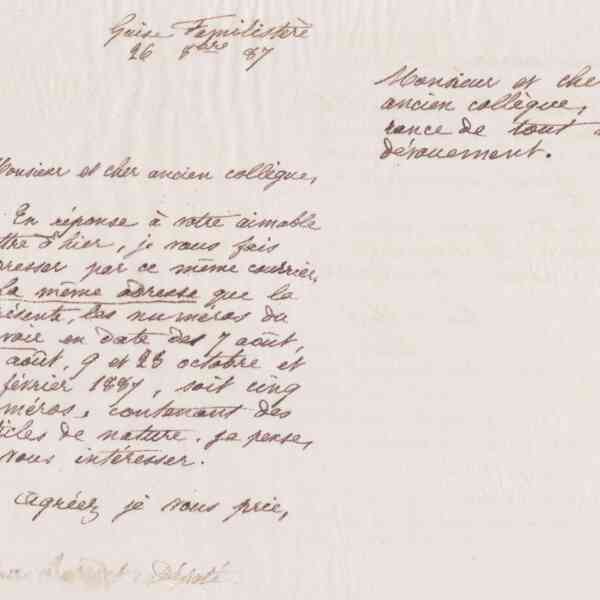 Guise Familistère
26 8bre 87
Monsieur et cher ancien collègue,
En réponse à votre aimable
ttre d'hier, je vous fais
resser par ce même courrier,
La même adresse que la
résente, les numéros du
voir en date des 7 août,
août, 9 et 23 octobre et
février 1887, soit cinq
méros, contenant des
icles de nature, je pense,
vous intéresser.
Agréez je vous prie,
Député
Monsieur et che
ancien collègue,
rance de tout
dévouement.